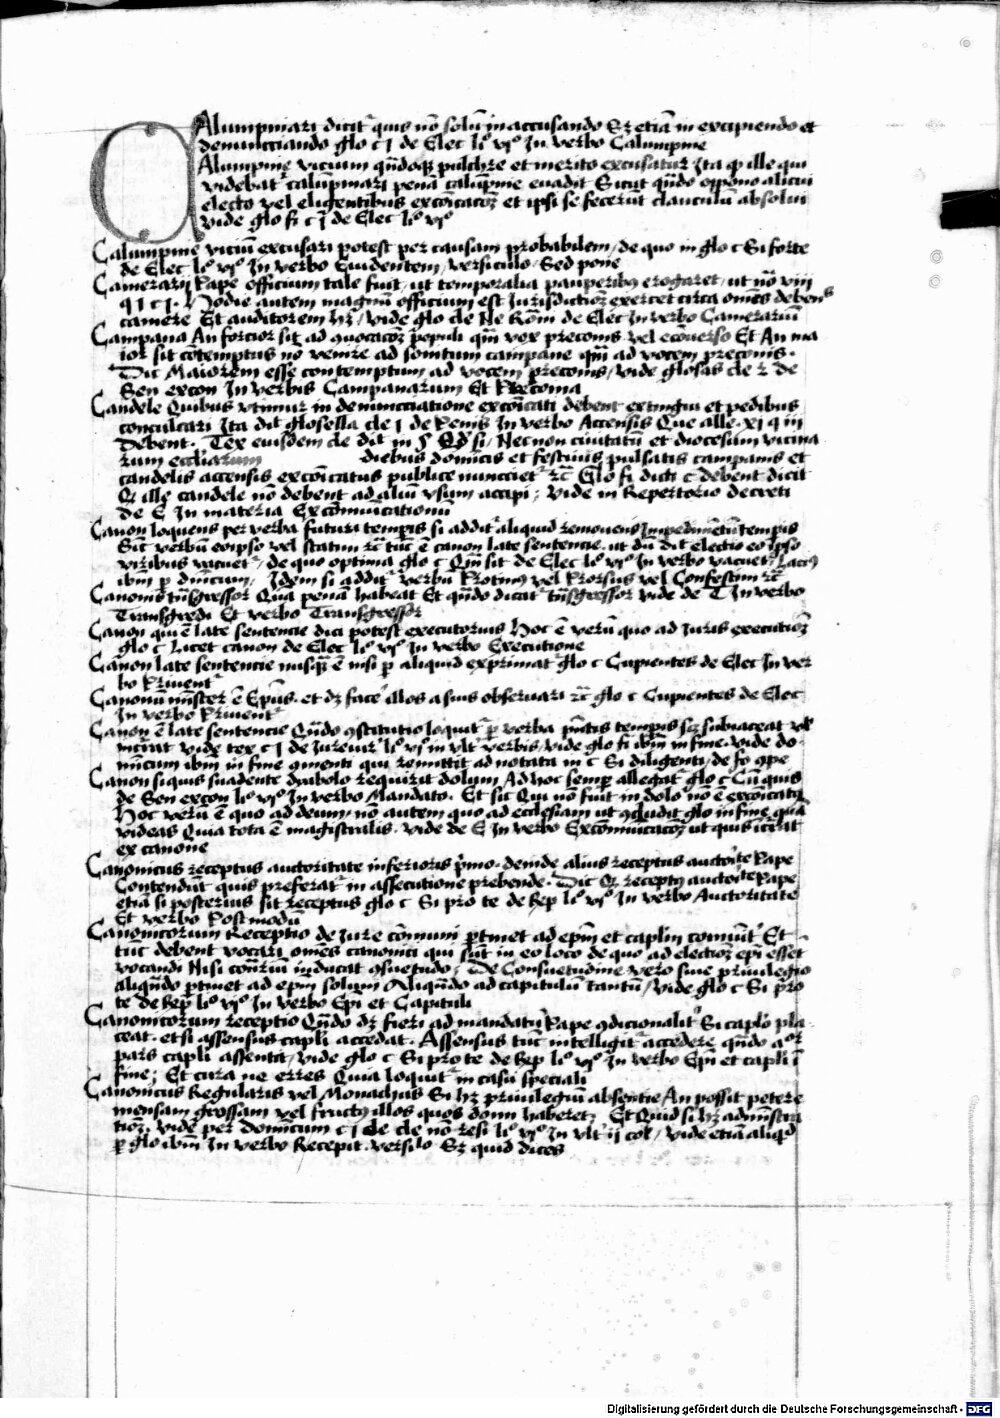 CAlumpniari dicit᷑ quis nō solū in accusando Sȝ etiā in excipiendo et
denuncciando glo c j de Elec li° vj° In verbo Calumpnie
Alumpnie vicium qn̄doqȝ pulchre et merito excusatur Ita qȝ ille qui
videbat᷑ calūpniari penā calūpnie euadit Sicut qn̄do oppono alicui
electo vel eligentibus excōicacōȝ et ipsi se fecerūt clanculū absolui
vide glo fi c j de Elec li° vj°
Calumpnie viciū excusari potest per causam probabilem / de quo in glo c Si forte
de Elec li° vj° In verbo Euidentem / versiculo / Sed pone
Camerarij Pape officium tale fuit / ut temporalia pauperibus erogaret / ut nō viij
q j c j . Hodie autem magnū officium est Jurisdictioȝ exercet circa omēs debens
camere Et auditorem hȝ / vide glo de Ne Rom̄ de Elec In verbo Camerariū
Campana An forcior sit ad quocacōȝ populi qm̄ vox preconis vel ecōuerso Et An ma
ior sit cōtemptus nō venire ad sonitum campane qm̄ ad vocem preconis .
Dic Maiorem esse contemptum ad vocem preconis / vide glosas de r de
Sen excon In verbis Campanarum Et Preconia
Candele Quibus vtimur in denuncciatione excōicati debent extingui et pedibus
conculcari Ita dit glosella de j de Penis In verbo Accensis Que alle . xj q iij
Debent . Tex eiusdem cle dit in § Qd̄ si / Necnon ciuitatū et diocesum vicina
rum eccliarum diebus dominicis et festiuis pulsatis campanis et
candelis accensis excōicatus publice nuncciet᷑ rc̄ Glo fi dicti c debent dicit
Qȝ ille candele nō debent ad aliū vsum accipi ; vide in Repertorio decreti
de E In materia Excōmunicationū
Canon loquens per verba futuri temporis si addit᷑ aliquid remouens Impedimētū temporis
Sic verbū eoipso vel statim rc̄ tūc ē canon late sentencie . ut dū dit electio eo ipso
viribus vacuet᷑ / de quo optima glo c Qm̄ sit de Elec li° vj° In verbo vacuet᷑
ibm̄ p dn̄icum / Idem si addit᷑ verbū Protinus vel Prorsus vel Confestim rc̄
Canonis tūsgressor Quā penā habeat Et qn̄do dicat᷑ tūsgressor vide de T In verbo
Transgredi Et verbo Transgressor
Canon qui ē late sentencie dici potest executorius Hoc ē verū quo ad Juris executioȝ
glo c Licet canon de Elec li° vj° In verbo Executione
Canon late sentencie nusqȝ ē nisi p aliquid exprimat᷑ glo c Cupientes de Elec In ver
bo Priuent᷑
Canonū mīster ē Epūs . et dȝ face᷑ illos a suis obseruari rc̄ glo c Cupientes de Elec
In verbo Priuent᷑
Canon ē late sentencie Qn̄do ꝯstitutio loquit᷑ p verba pn̄tis temporis scȝ subiaceat vl᷑
incurrat vide tex c j de Jureiur᷑ li° vj° in vlt᷑ verbis / vide glo fi ibm̄ in fine . vide do
mīcum ibm̄ in fine ꝯmenti qui remittit ad notata in c Si diligenti / de fo ꝯpe
Canon siquis suadente dyabolo requirit dolum Ad hoc semp allegat᷑ glo c Cū quis
de Sen excon li° vj° In verbo Mandato . Et sic Qui nō fuit in dolo nō ē excōicatꝯ
Hoc verū ē quo ad deum / nō autem quo ad ecclesiam ut ꝯcludit glo in fine quā
videas Quia tota ē magistralis . vide de E In verbo Excōmunicacōȝ ut quis incurrat
ex canone
Canonicus receptus auctoritate inferioris p̄mo . deinde alius receptus auctoritate Pape
Contendūt quis preferat᷑ in assecutione prebende . Dic Qȝ receptꝯ auctoritate Pape
etiā si posterius sit receptus glo c Si pro te de Rep li° vj° In verbo Auctoritate
Et verbo Postmodū
Canonicorum Receptio de Jure cōmuni ptinet ad epm̄ et caplm̄ coniūt᷑ Et
tūc debent vocari omēs canonici qui sūt in eo loco de quo ad electioȝ epi essēt
vocandi Nisi cōtrariū inducat ꝯsuetudo ; De Consuetudine vero siue priuilegio
aliqn̄do ptinet ad epm̄ solum Aliqn̄do ad capitulū tantū / vide glo c Si pro
te de Rep li° vj° In verbo Epi et Capituli
Canonicorum receptio Qn̄do dȝ fieri ad mandatū Pape ꝯdicionalit᷑ Si caplo pla
ceat . et si assensus capli accedat . Assensus tūc intelligit᷑ accedere qn̄do a°r
pars capli assentit / vide glo c Si pro te de Rep li° vj° In verbo Epi et capli ī
fine ; Et cura ne erres Quia loquit᷑ in casu speciali
Canonicus Regularis vel Monachus Si hȝ priuilegiū absentie An possit petere
mensam grossam vel fructꝯ illos quos domi haberet Et Quid si hȝ admīstra
tioȝ . vide per Domicum c j de cle nō resi li° vj° In vlt᷑ ij col / vide etiā aliqd̄
p glo ibm̄ In verbo Recepit . versilo Sȝ quid dices
Digitalisierung gefördert durch die Deutsche Forschungsgemeinschaft - DFG